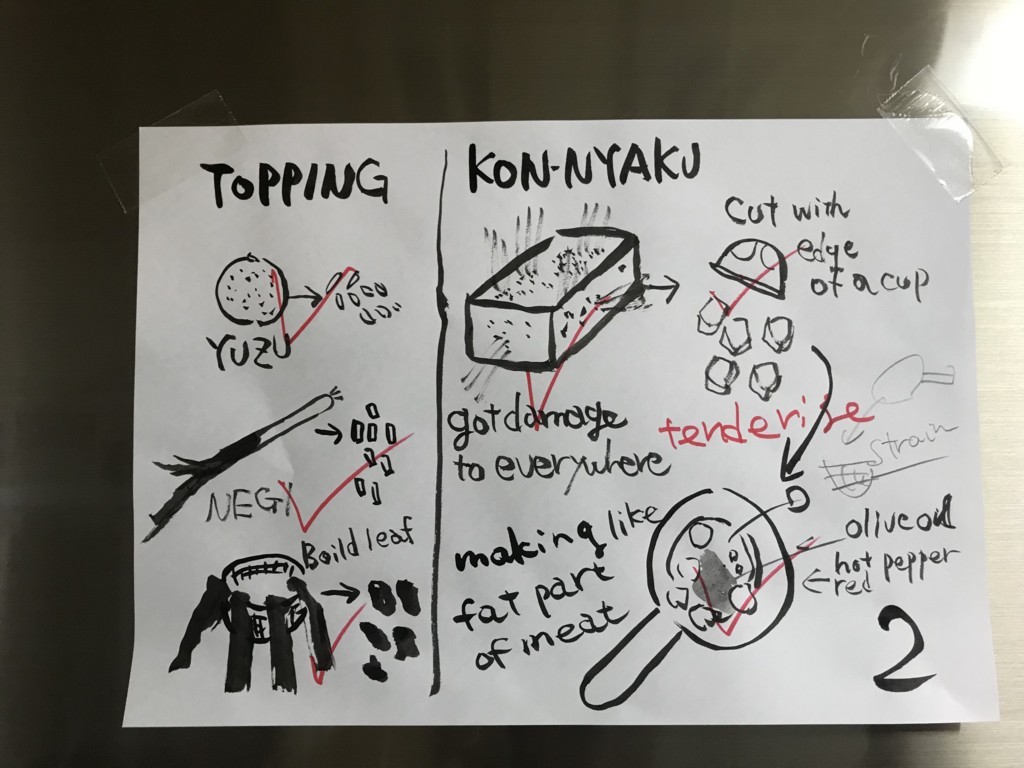 TOPPING
YUZU
NEGI
Boild leaf
KON-NYAKU
cut with
edge
of a cup
got damage
to everywhere
tenderise
strain
making like
fat part
of meat
olive oil
hot pepper
red
2